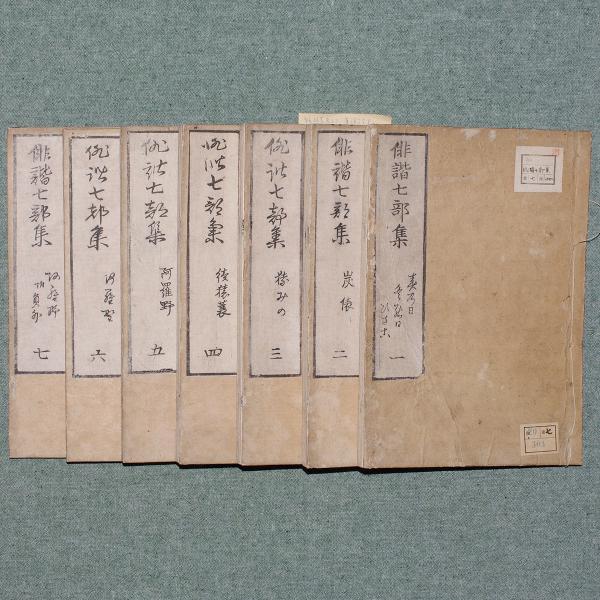 俳諧七部集
春の日
冬の日
ひさこ
一
俳諧七部集
炭俵
二
俳諧七部集
猿みの
三
俳諧七部集
続猿蓑
四
俳諧七部集
阿羅野
五
俳諧七部集
阿羅野
六
俳諧七部集
阿羅野
員外
七